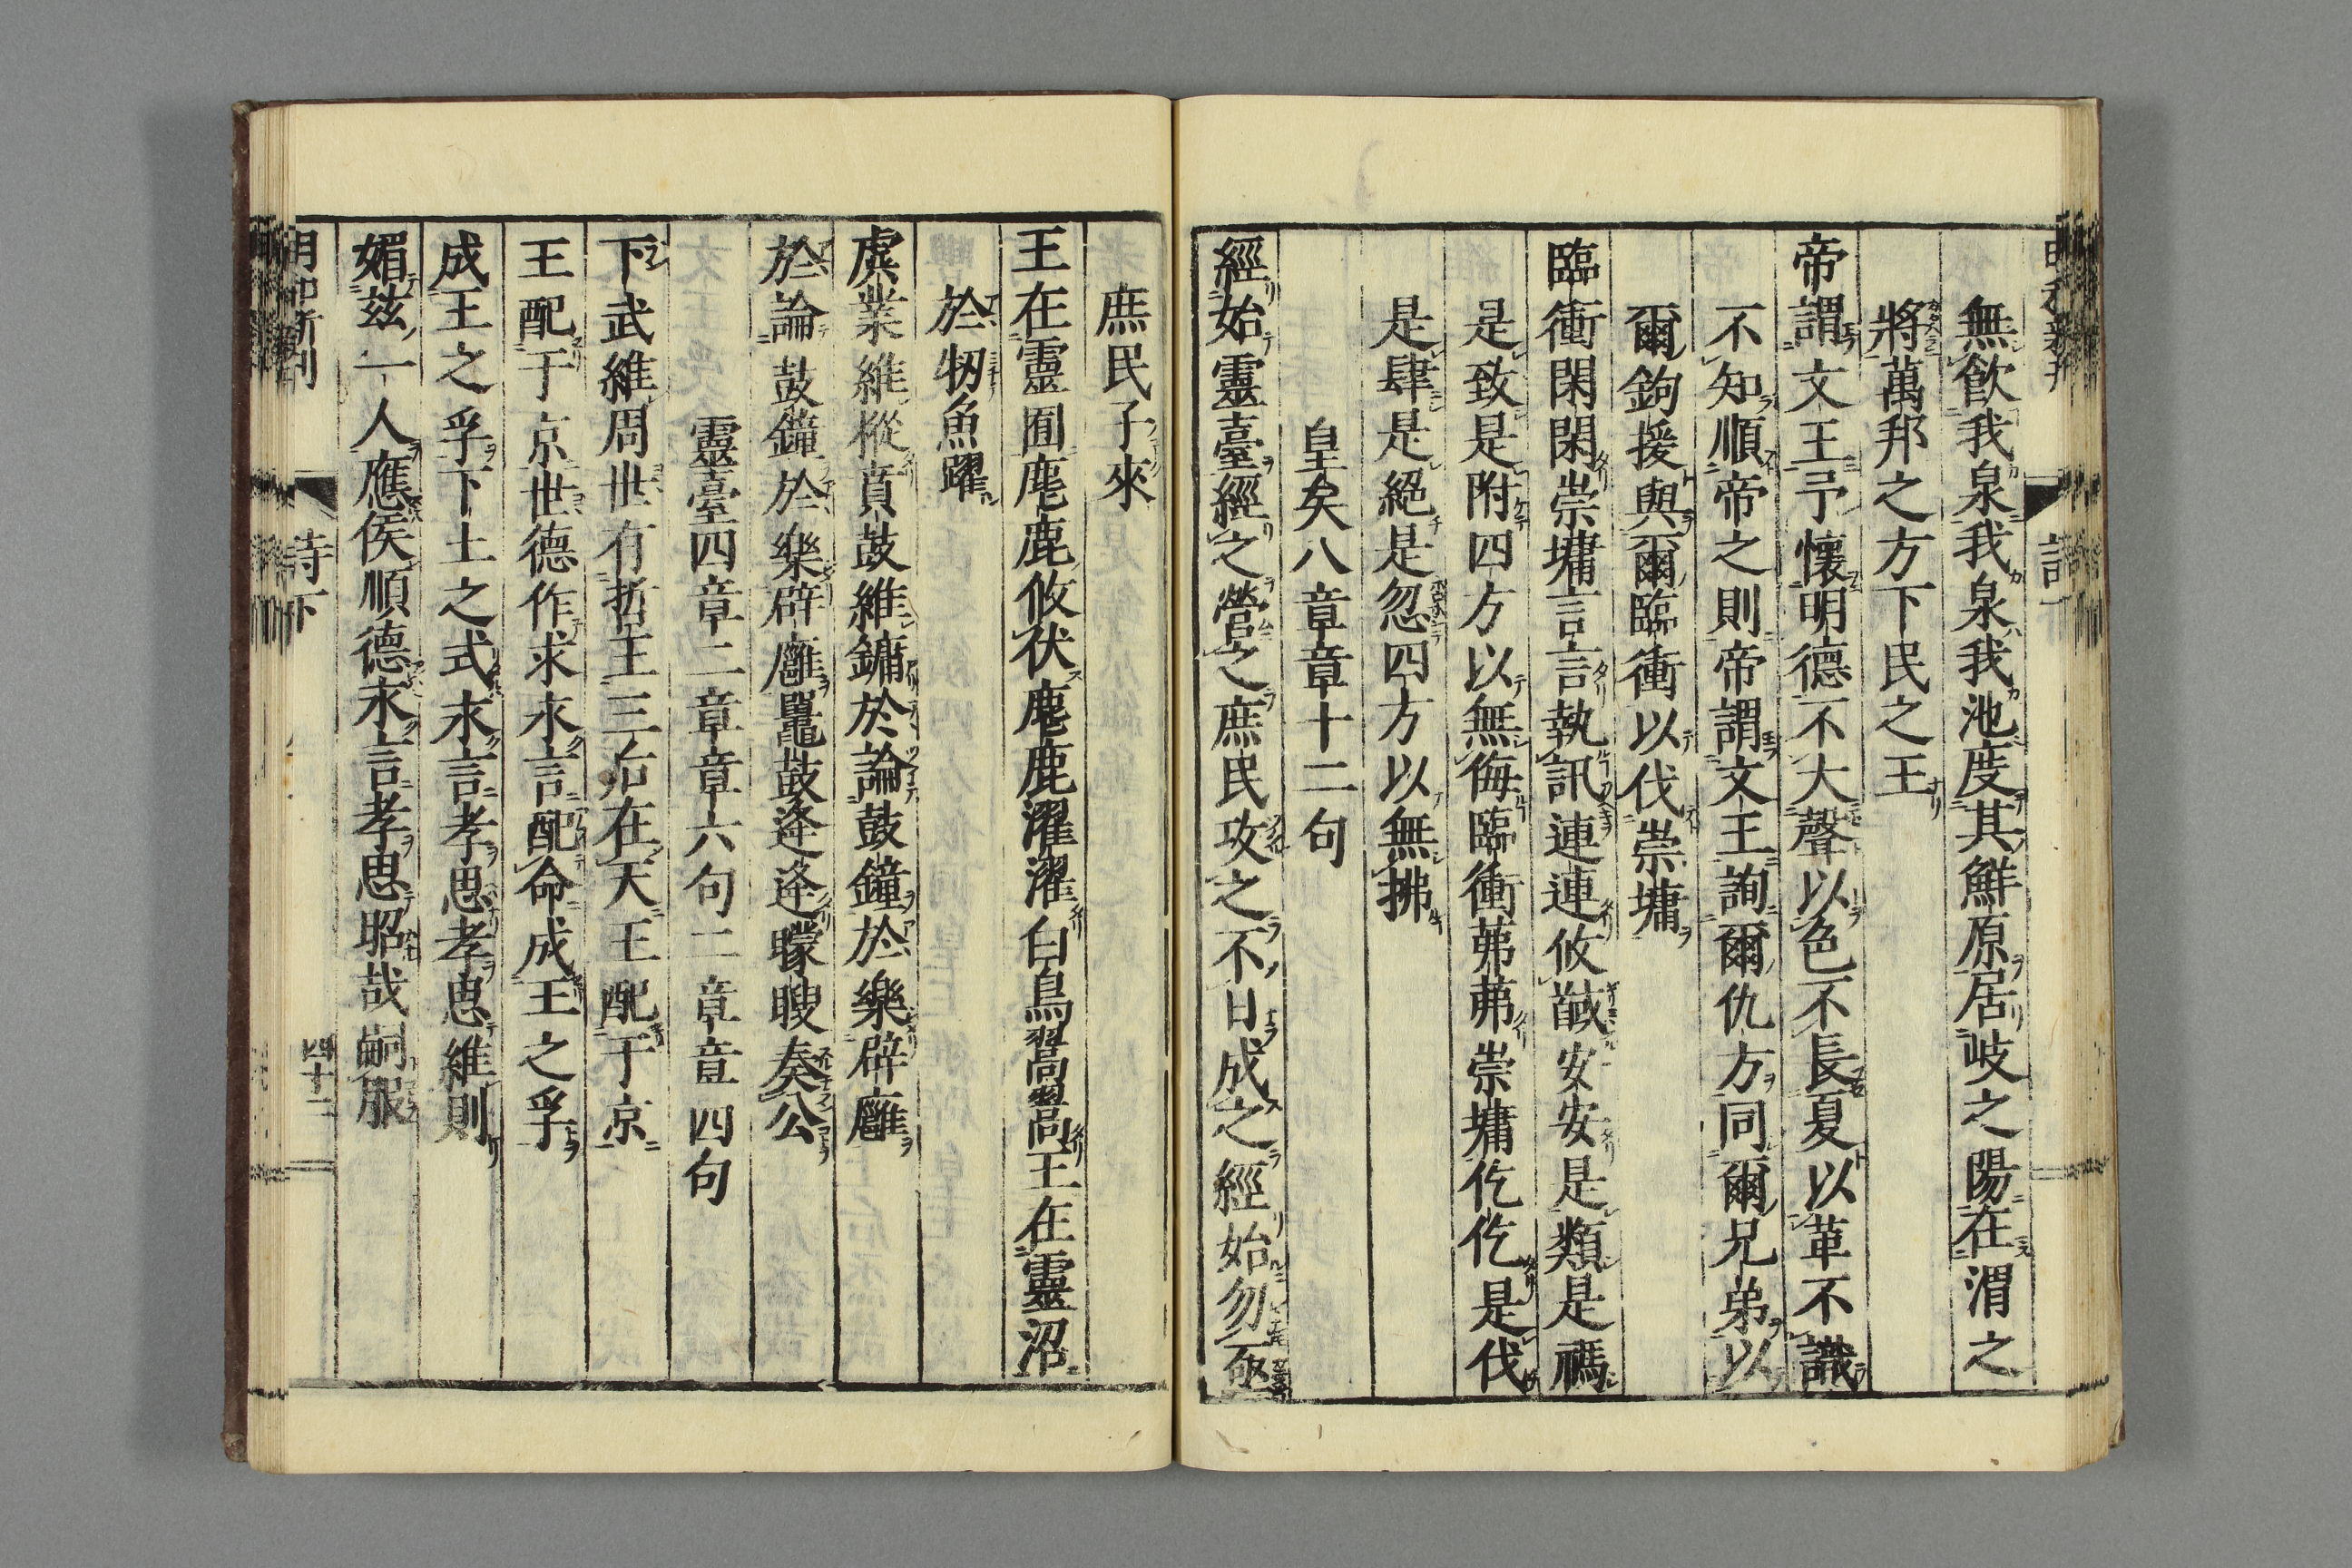 無飲我泉我泉我池度其鮮原居岐之陽在渭之
將萬邦之方下民之王
帝謂文王予懷明德不大聲以色不長夏以革不識
不知順帝之則帝謂文王詢爾仇方同爾兄弟以
爾鉤援與爾臨衝以伐崇墉
臨衝閑閑崇墉言言執訊連連攸馘安安是類是禡
是致是附四方以無侮臨衝茀茀崇墉仡仡是伐
是肆是絕是忽四方以無拂
皇矣八章章十二句
經始靈臺經之營之庶民攻之不日成之經始勿亟
庶民子來
王在靈囿麀鹿攸伏麀鹿濯濯白鳥翯翯王在靈沼
於牣魚躍
虡業維樅賁鼓維鏞於論鼓鐘於樂辟廱
於論鼓鐘於樂辟廱鼉鼓逢逢矇瞍奏公
靈臺四章二章章六句二章章四句
下武維周世有哲王三后在天王配于京
王配于京世德作求永言配命成王之孚
成王之孚下土之式永言孝思孝思維則
媚茲一人應侯順德永言孝思昭哉嗣服
詩下
四十二